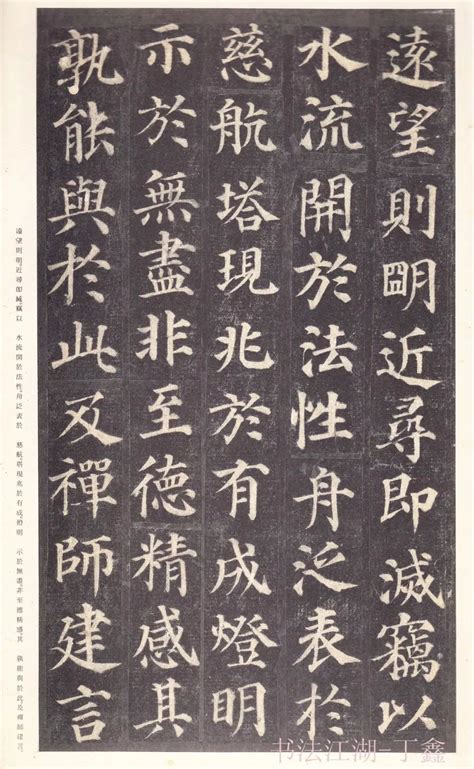 遠望則明近尋即滅竊以
水流開於法性舟泛表於
慈航塔現兆於有成燈明
示於無盡非至德精感其
孰能與於此及禪師建言
遠望則明近尋即滅竊以 水流開於法性舟泛表於 慈航塔現兆於有成燈明 示於無盡非至德精感其 孰能與於此及禪師建言
书法江湖-丁鑫